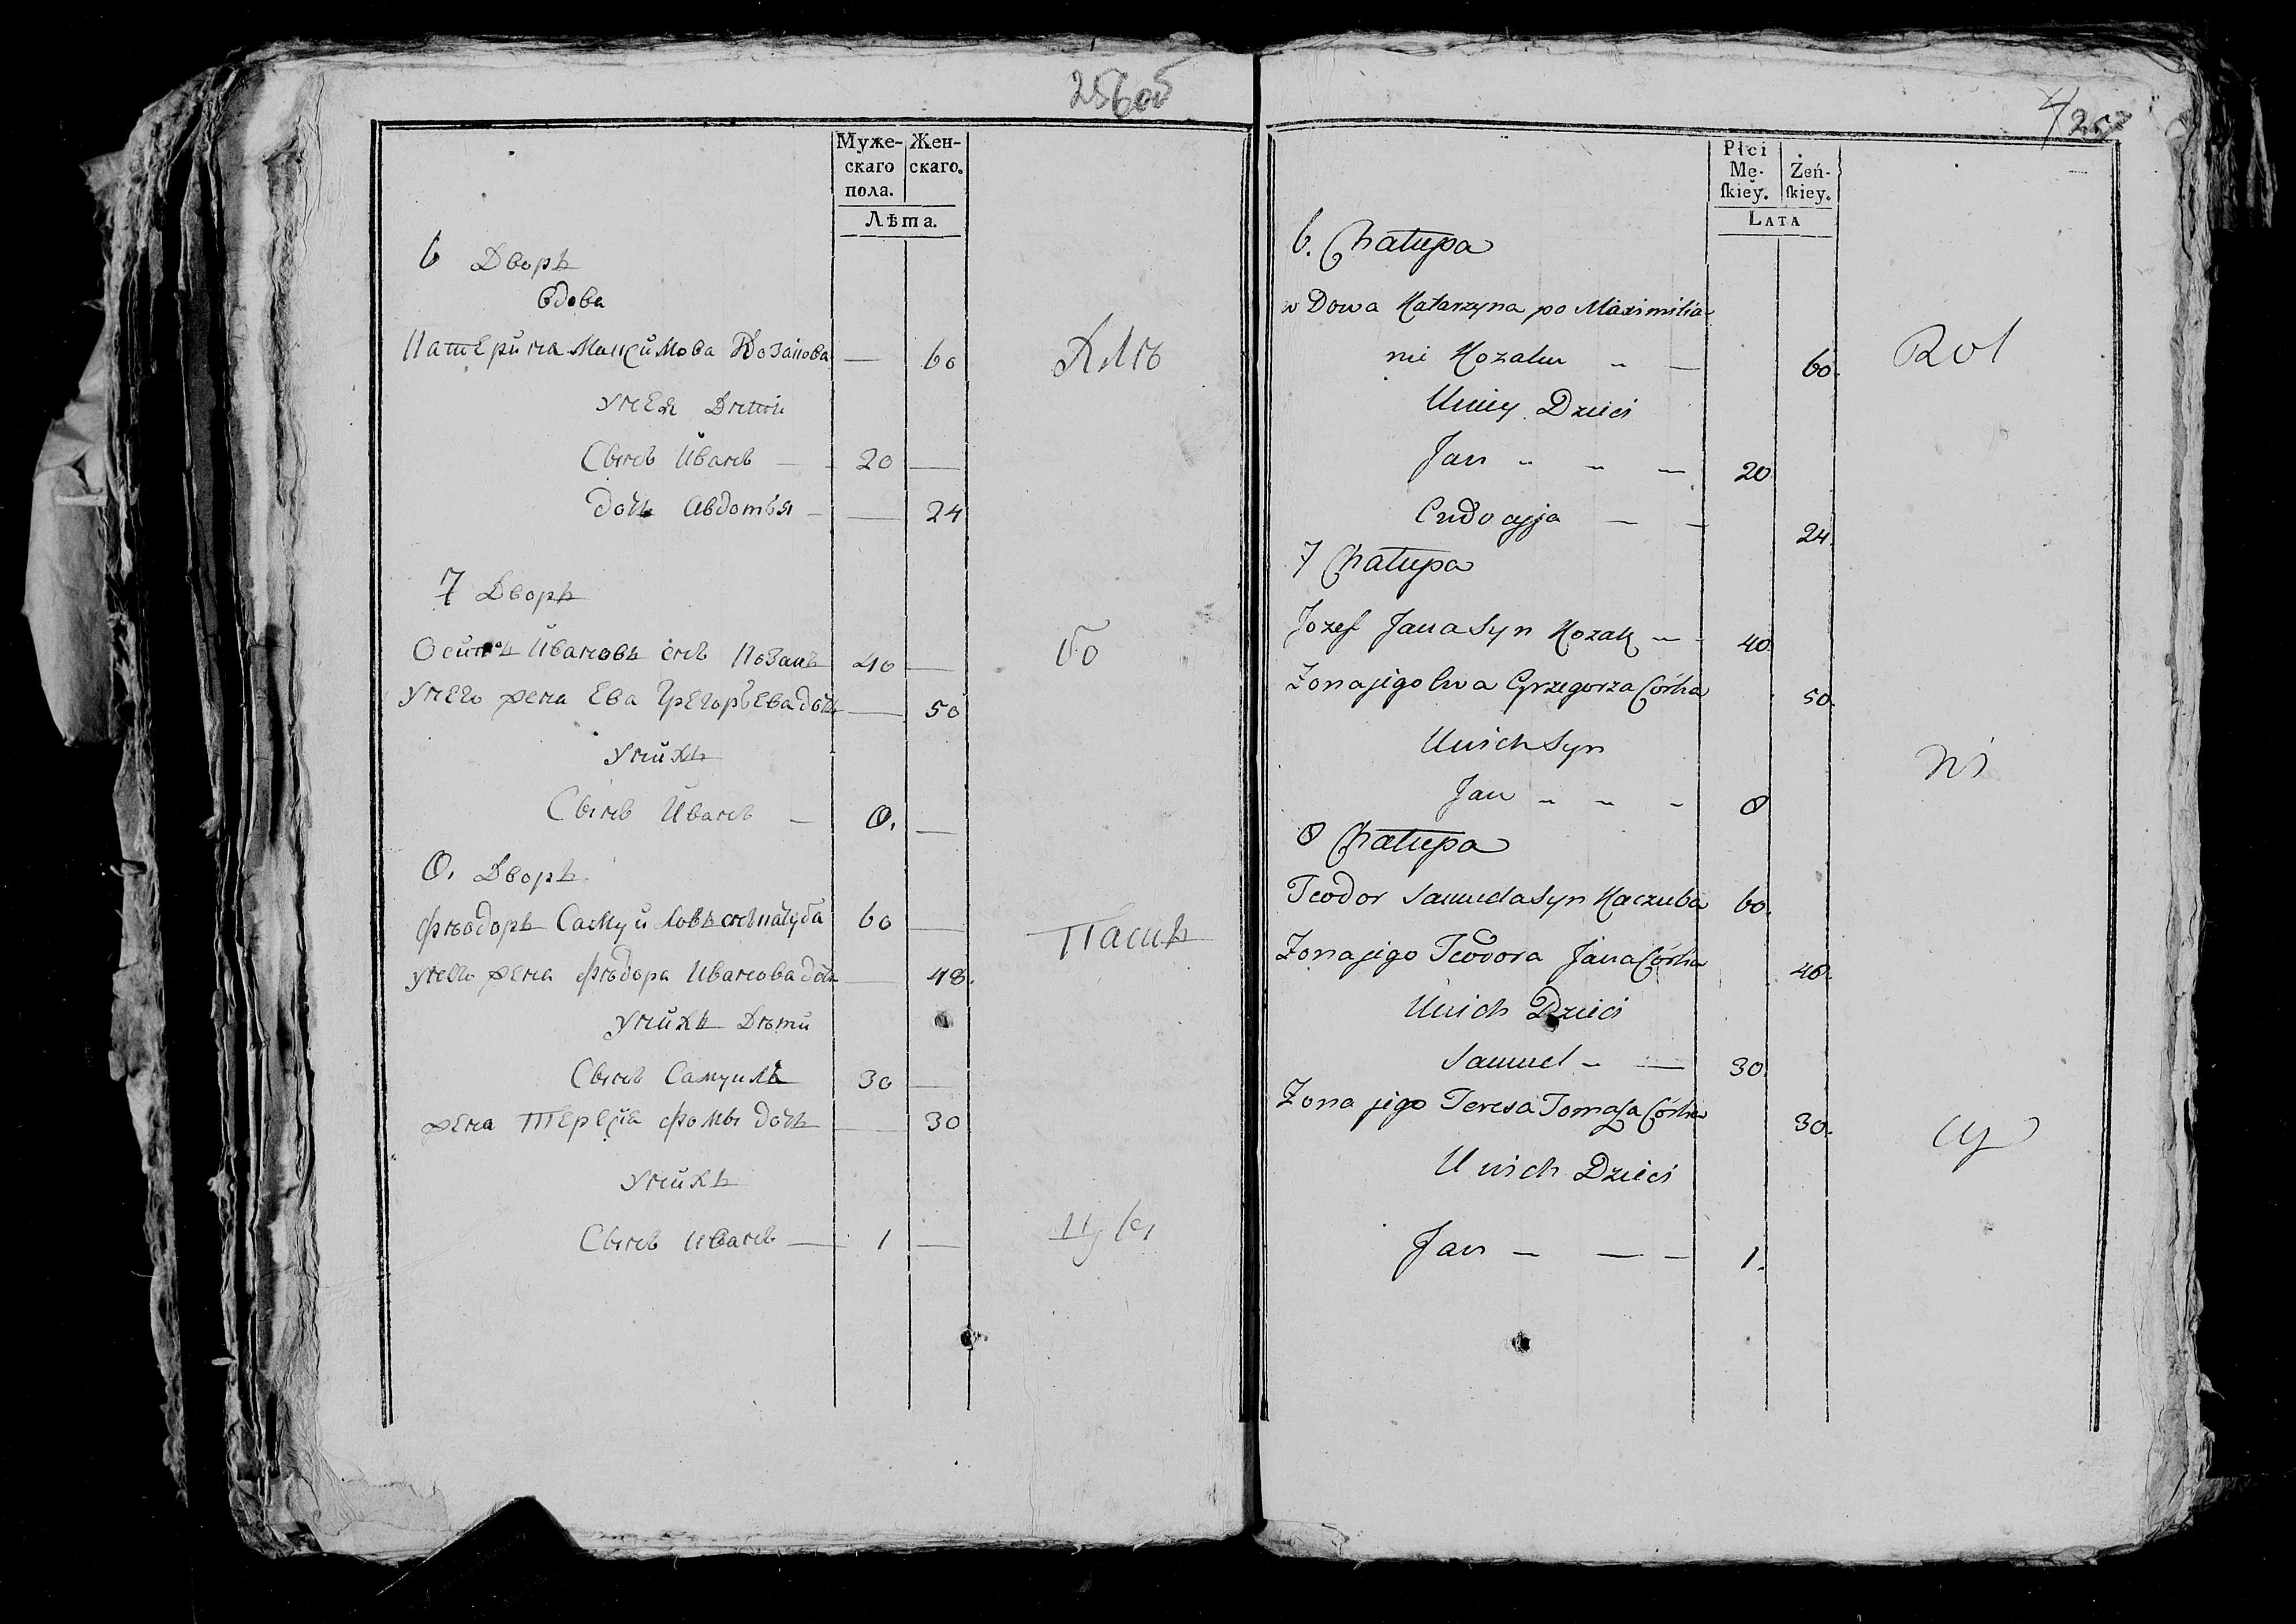 256об
Муже-
скаго
пола.
Жен-
скаго.
Лѣта.
6 Дворъ
вдова
Катерина Максимова Козакова — 60
Унея Дети
Сынъ Иванъ — 20 —
дочь Авдотья — — 24
7 Дворъ
Осипъ Ивановъ снъ Козакъ 40 —
Унего жена Ева Грегорьева дочь — 50
Унихъ
Сынъ Иванъ — 8. —
8. Дворъ
Фѣодоръ Самуйловъ снъ Качуба 60 —
унего жена Фѣдора Иванова дочь — 48.
Унихъ Дѣти
Сынъ Самуилъ 30 —
жена Тересіа Фомы дочь — 30
Унихъ
Сынъ Иванъ — 1 —
Пасик
4
257
Płci
Mę-
ſkiey.
Żeń-
ſkiey.
LATA
6. Chałupa
wDowa Katarzyna po Maximilia-
nie Kozaku - — 60.
Uniey Dzieci
Jan - - — 20.
Eudocyja — - 24.
7 Chałupa
Jozef Jana Syn Kozak — - 40.
Zona jego Ewa Grzegorza Córka 50.
Unich Syn
Jan - - - 8
8 Chałupa
Teodor Samuela Syn Kaczuba 60.
Zona jego Teodora Jana Córka 48.
Unich Dzieci
Samuel - — 30.
Zona jego Teresa Tomaſza Córka 30.
Unich Dzieci
Jan — — — 1.
Rol
ni
cy